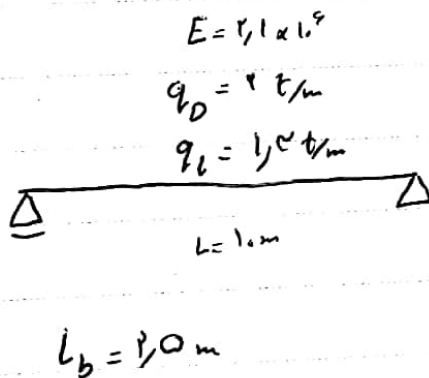 E = ۲,۱ × ۱۰^۶
q_D = ۲ t/m
q_l = ۱,۳ t/m
L = ۱۰ m
L_b = ۲,۵ m